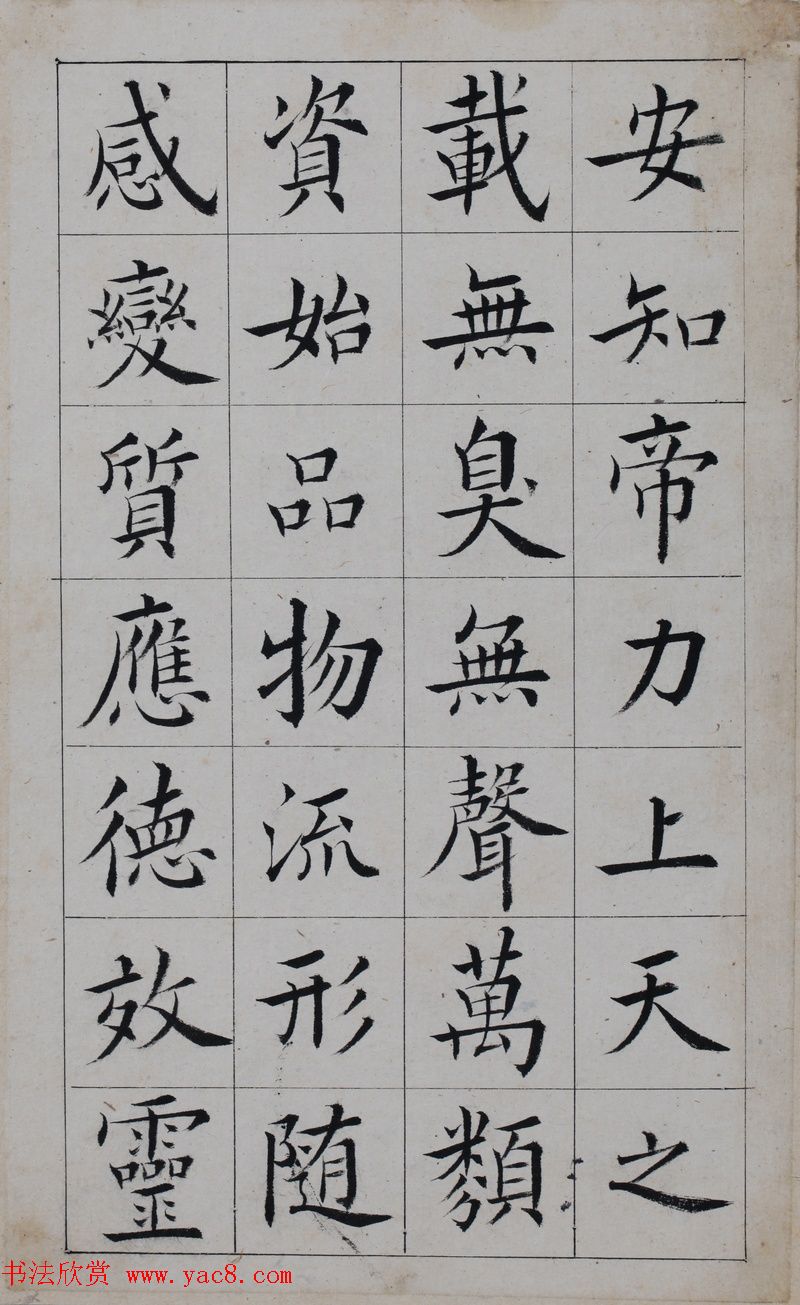 安知帝力上天之
載無臭無聲萬類
資始品物流形随
感變質應德效靈
书法欣赏 www.yac8.com